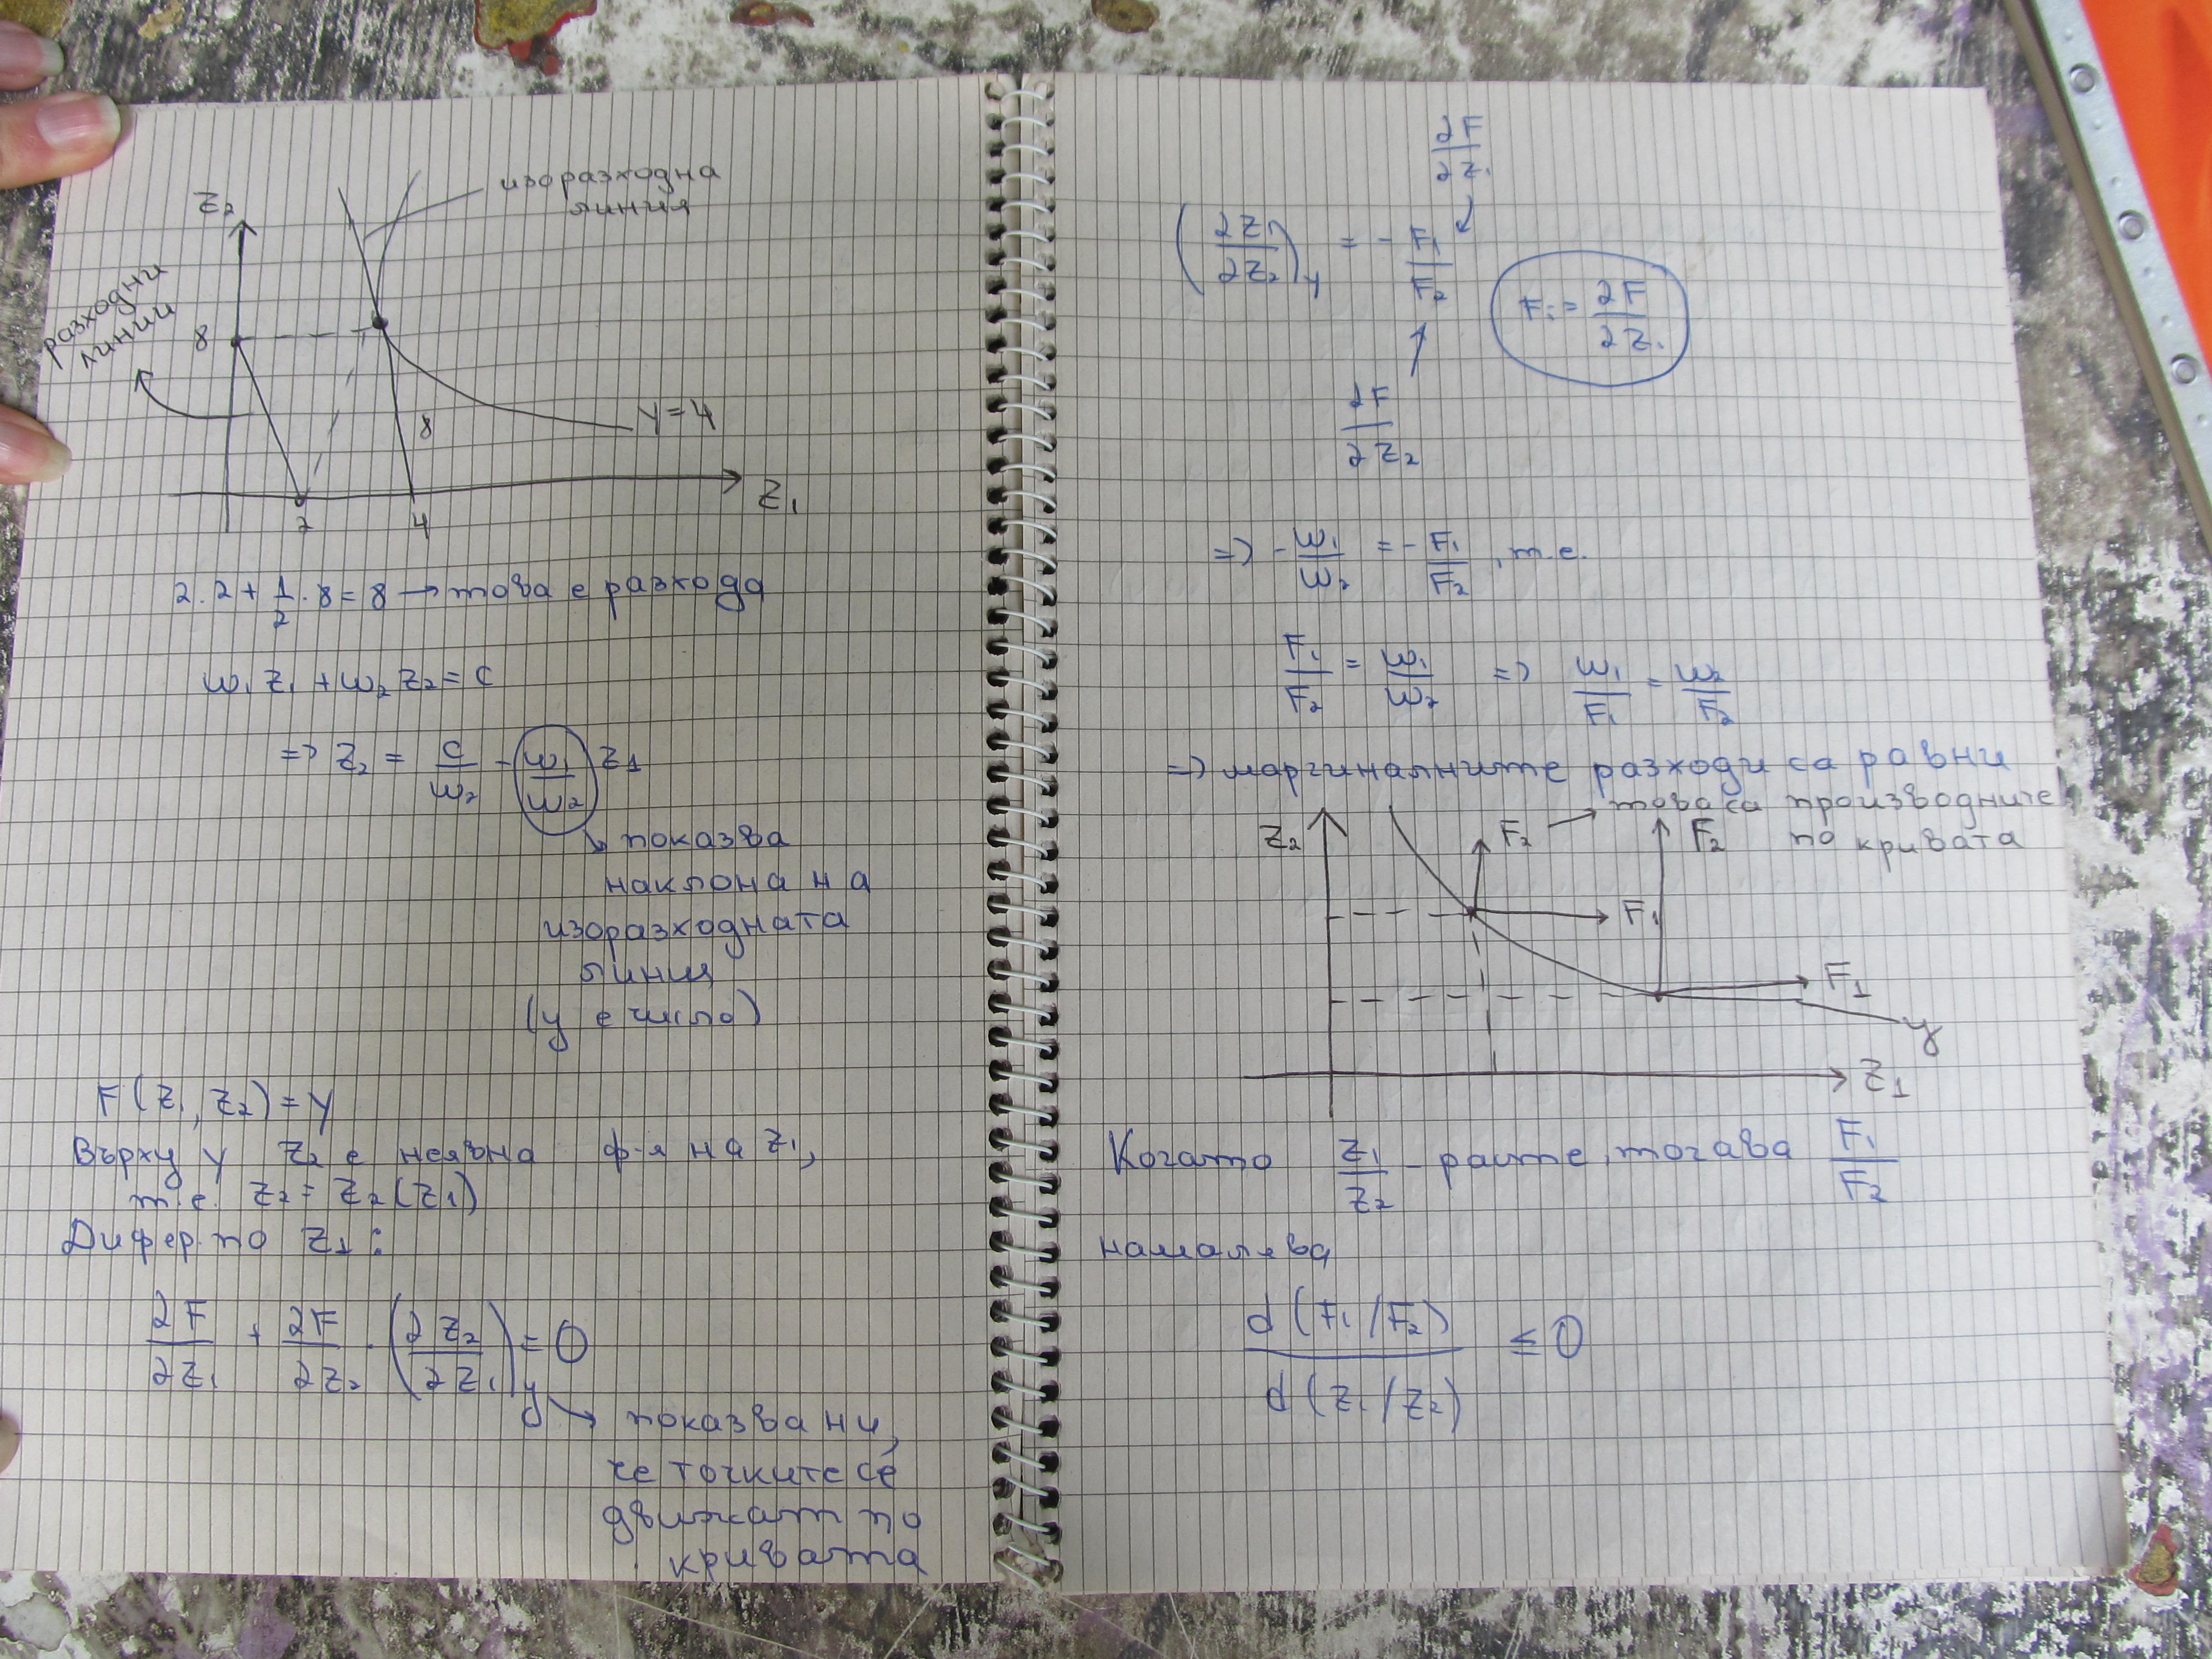 изоразходна
линия
z₂
разходни
линии
8
y=4
8
z₁
2
4
2.2+1/2.8=8→това е разхода
w₁z₁+w₂z₂=c
=> z₂ = c/w₂ - w₁/w₂ z₁
показва
наклона на
изоразходната
линия
(y е число)
F(z₁, z₂)=y
Върху y z₂ е неявна ф-я на z₁,
т.е. z₂=z₂(z₁)
Дифер. по z₁:
∂F/∂z₁ + ∂F/∂z₂ . (∂z₂/∂z₁)y = 0
показва ни,
че точките се
движат по
кривата
∂F/∂z₁
(∂z₁/∂z₂)y = - F₁/F₂
Fi = ∂F/∂zi
∂F/∂z₂
=> -w₁/w₂ = -F₁/F₂, т.е.
F₁/F₂ = w₁/w₂ => w₁/F₁ = w₂/F₂
=> маргиналните разходи са равни
това са производните
по кривата
z₂
F₂
F₂
F₁
F₁
y
z₁
Когато z₁/z₂ - расте, тогава F₁/F₂
намалява
d(F₁/F₂)/d(z₁/z₂) ≤ 0